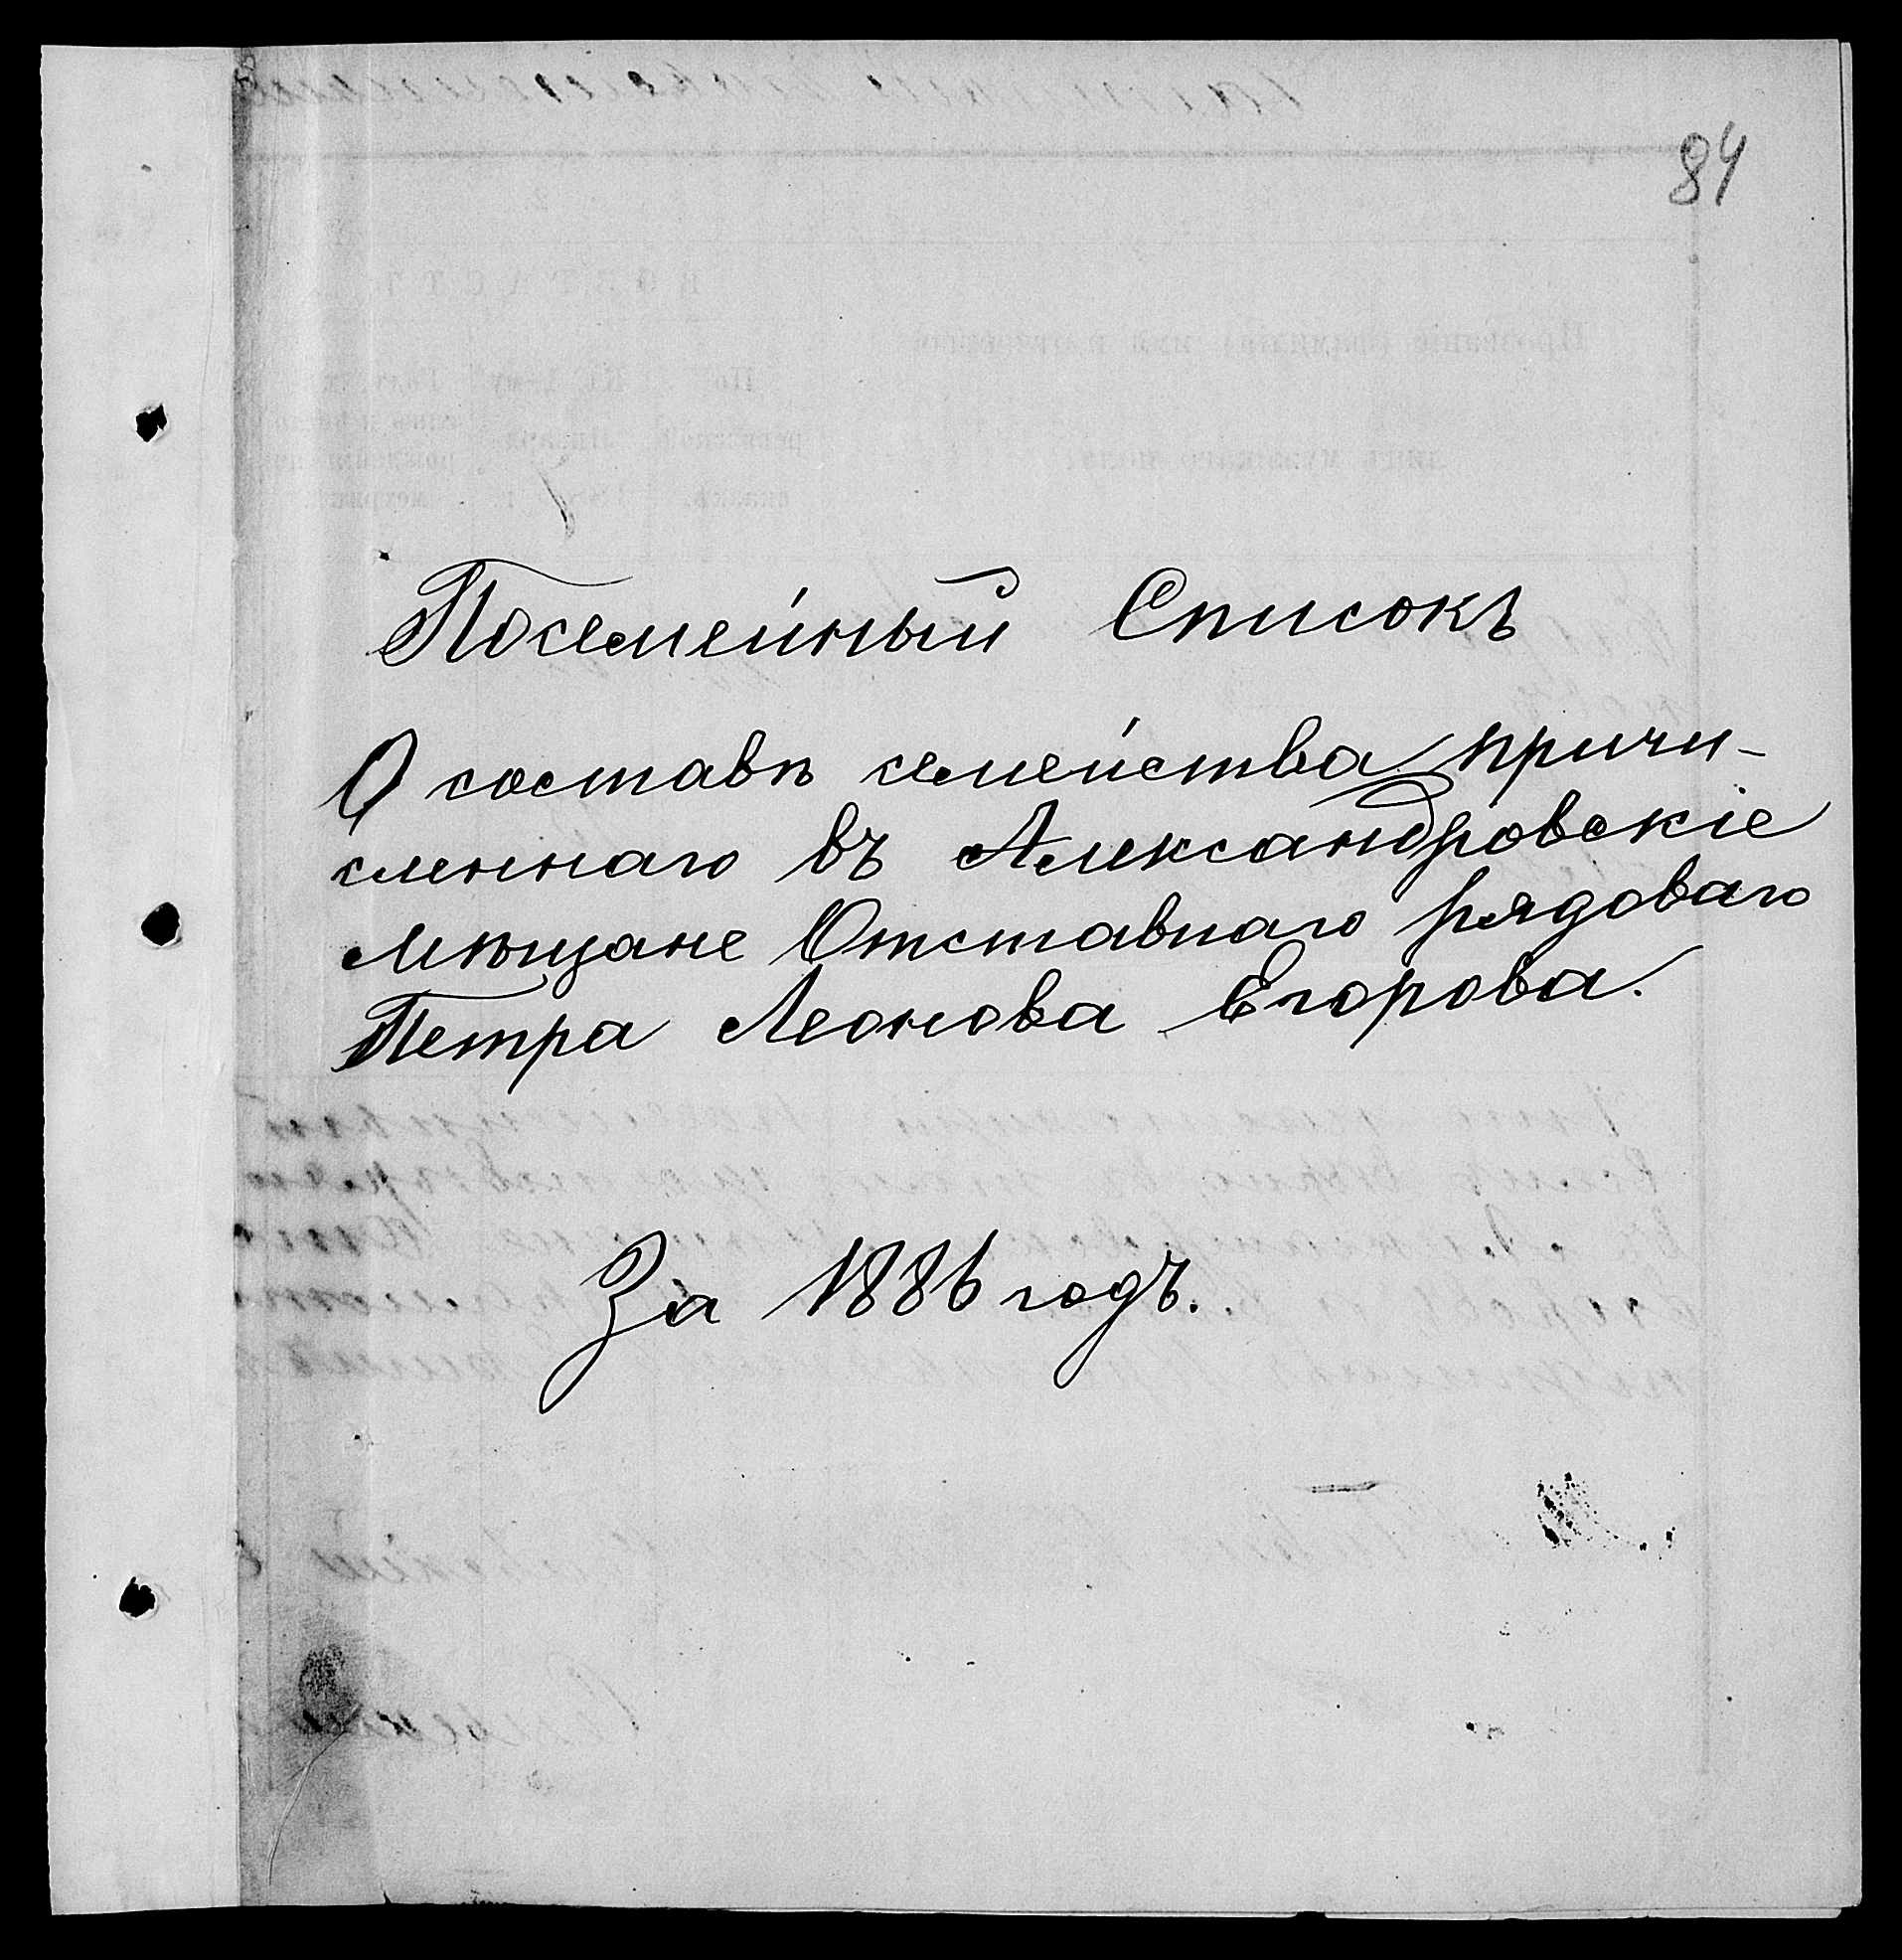 84
Посемейный Списокъ
О составѣ семейства причи-
сленнаго въ Александровскіе
Мѣщане Отставнаго рядоваго
Петра Леонова Егорова.
За 1886 годъ.